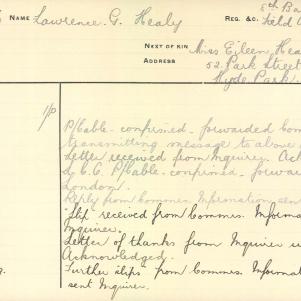 NAME Lawrence. G. Healy
REG. &C. 8th Ba
Field
NEXT OF KIN Miss Eileen Hea
ADDRESS 52. Park Street
Hyde Park.
1/p
P/Cable. confirmed. forwarded Com
transmitting message to above a
Letter received from Inquirer. Ack
of C.C. P/Cable. confirmed. forwar
London.
Reply from Commes. Information sen
Slip received from Commes. Informa
Inquirer.
Letter of thanks from Inquirer
Acknowledged.
Further slips from Commes. Informati
sent Inquirer.